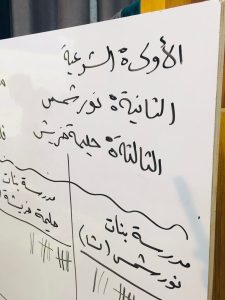 الأولى: الشرعية
الثانية: نور شمس
الثالثة: حليمة خريش
مدرسة بنات
نور شمس (ث)
مدرسة بنات
حليمة خريشة